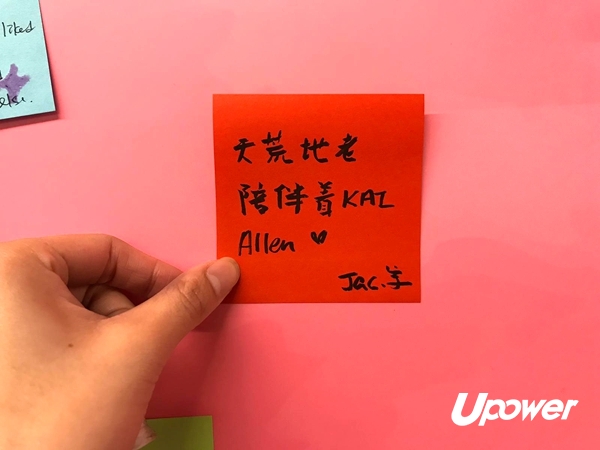 liked
else.
天荒地老
陪伴着KAZ
Allen ♥
Jac.字
Upower